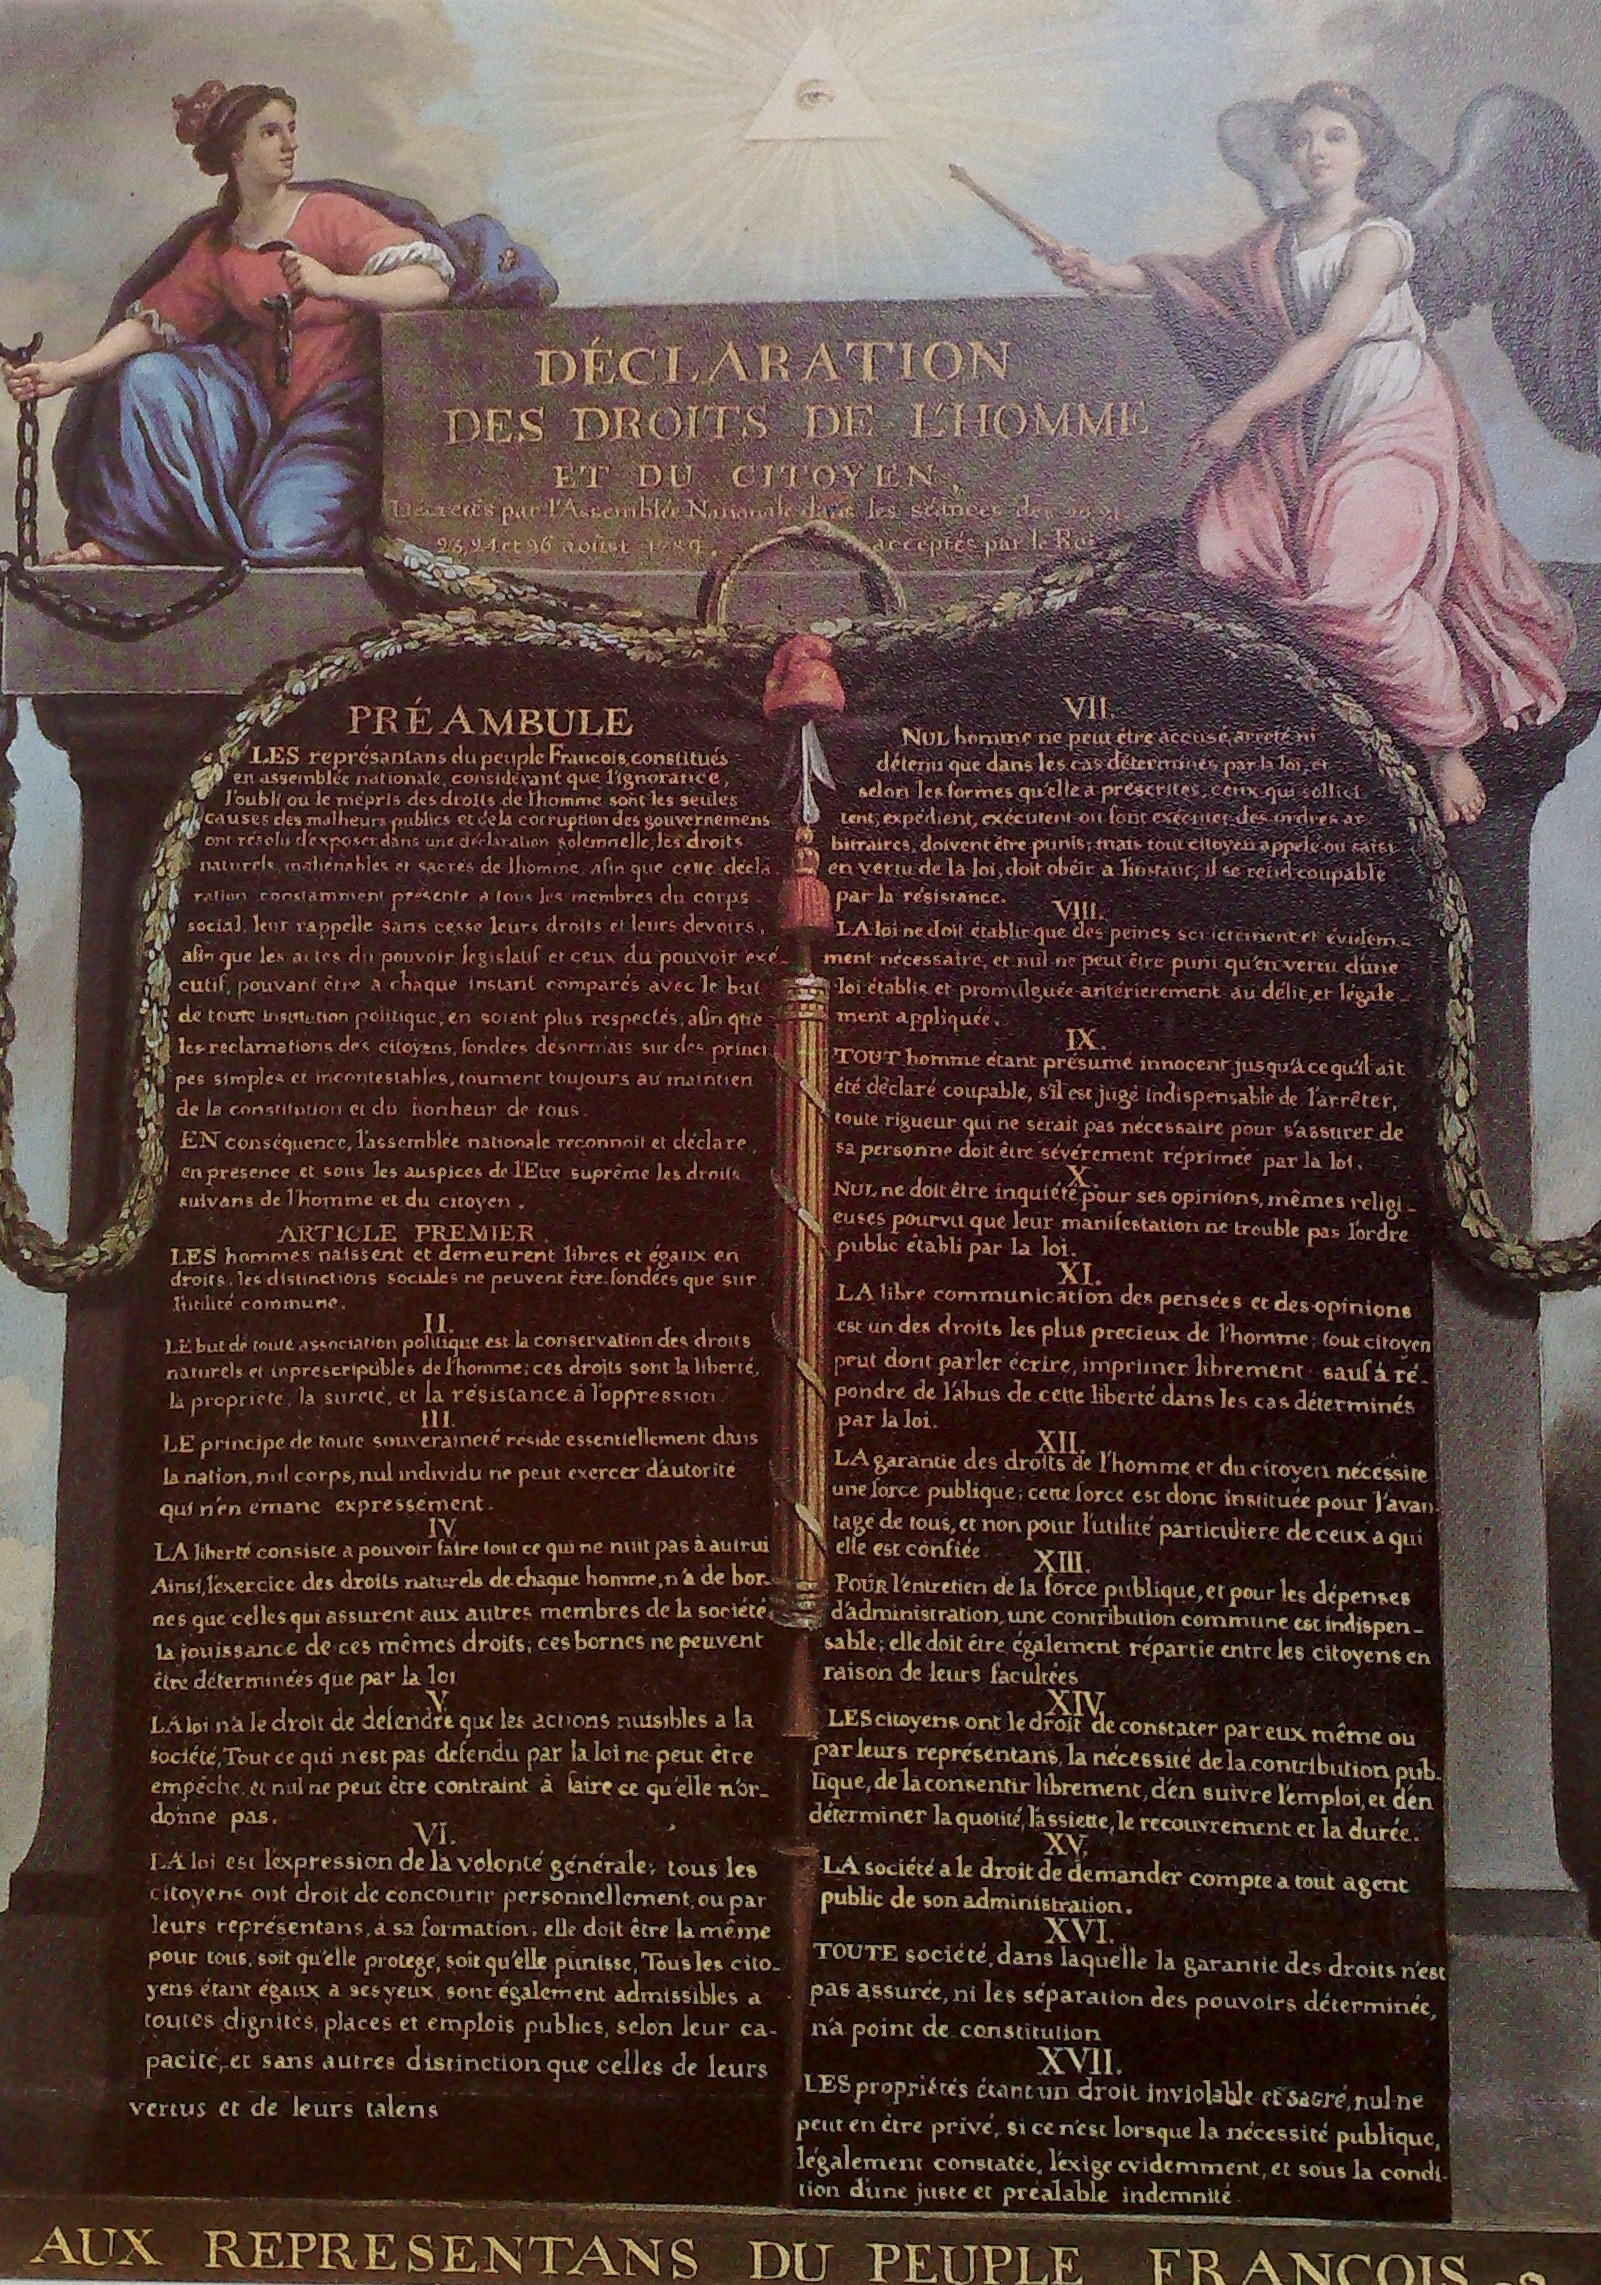 DÉCLARATION
DES DROITS DE L'HOMME
ET DU CITOYEN,
Décrétés par l'Assemblée Nationale dans les séances des 20, 21
23, 24 et 26 aoûst 1789, acceptés par le Roi
PRÉAMBULE
LES représantans du peuple Francois, constitués
en assemblée nationale, considérant que l'ignorance,
l'oubli ou le mépris des droits de l'homme sont les seules
causes des malheurs publics et de la corruption des gouvernemens
ont résolu d'exposer dans une déclaration solemnelle, les droits
naturels, inaliénables et sacrés de lhomme, afin que cette décla
ration constamment présente a tous les membres du corps
social, leur rappelle sans cesse leurs droits et leurs devoirs,
afin que les actes du pouvoir legislatif et ceux du pouvoir exé-
cutif, pouvant être a chaque instant comparés avec le but
de toute institution politique, en soient plus respectés; afin que
les reclamations des citoyens, fondées désormais sur des princi
pes simples et incontestables, tournent toujours au maintien
de la constitution et du bonheur de tous.
EN conséquence, l'assemblée nationale reconnoit et déclare,
en presence et sous les auspices de l'Etre suprême les droits
suivans de l'homme et du citoyen.
ARTICLE PREMIER.
LES hommes naissent et demeurent libres et égaux en
droits, les distinctions sociales ne peuvent être fondées que sur
l'utilité commune.
II.
LE but de toute association politique est la conservation des droits
naturels et inprescriptibles de l'homme; ces droits sont la liberté,
la propriete, la sureté, et la résistance à l'oppression.
III.
LE principe de toute souveraineté réside essentiellement dans
la nation, nul corps, nul individu ne peut exercer d'autorité
qui n'en émane expressément.
IV.
LA liberté consiste a pouvoir faire tout ce qui ne nuit pas à autrui
Ainsi, l'exercice des droits naturels de chaque homme, n'a de bor-
nes que celles qui assurent aux autres membres de la société
la jouissance de ces mêmes droits; ces bornes ne peuvent
être déterminées que par la loi
V.
LA loi n'a le droit de défendre que les actions nuisibles a la
société, Tout ce qui n'est pas defendu par la loi ne peut être
empêché, et nul ne peut être contraint à faire ce qu'elle n'or-
donne pas.
VI.
LA loi est l'expression de la volonté générale; tous les
citoyens ont droit de concourir personnellement, ou par
leurs représentans, à sa formation; elle doit être la même
pour tous, soit qu'elle protege, soit qu'elle punisse, Tous les cito-
yens étant égaux a ses yeux, sont également admissibles a
toutes dignités, places et emplois publics, selon leur ca-
pacité, et sans autres distinction que celles de leurs
vertus et de leurs talens
VII.
NUL homme ne peut être accusé, arreté ni
détenu que dans les cas déterminés par la loi, et
selon les formes qu'elle a prescrites, ceux qui sollici
tent, expédient, exécutent ou font exécuter des ordres ar
bitraires, doivent être punis; mais tout citoyen appelé ou saisi
en vertu de la loi, doit obéir a l'instant, il se rend coupable
par la résistance.
VIII.
LA loi ne doit établir que des peines strictement et évidem-
ment nécessaire, et nul ne peut être puni qu'en vertu d'une
loi établis et promulguée antérierement au délit, et légale-
ment appliquée.
IX.
TOUT homme étant présumé innocent jusqu'à ce qu'il ait
été déclaré coupable, s'il est jugé indispensable de l'arrêter,
toute rigueur qui ne serait pas nécessaire pour s'assurer de
sa personne doit être sévèrement réprimée par la loi.
X.
NUL ne doit être inquiété pour ses opinions, mêmes religi-
euses pourvu que leur manifestation ne trouble pas l'ordre
public établi par la loi.
XI.
LA libre communication des pensées et des opinions
est un des droits les plus precieux de l'homme; tout citoyen
peut dont parler écrire, imprimer librement sauf à ré-
pondre de l'abus de cette liberté dans les cas déterminés
par la loi.
XII.
LA garantie des droits de l'homme et du citoyen nécessite
une force publique; cette force est donc instituée pour l'avan
tage de tous, et non pour l'utilité particuliere de ceux a qui
elle est confiée.
XIII.
POUR l'entretien de la force publique, et pour les dépenses
d'administration, une contribution commune est indispen-
sable; elle doit être également répartie entre les citoyens en
raison de leurs facultées
XIV.
LES citoyens ont le droit de constater par eux même ou
par leurs représentans, la nécessité de la contribution pub-
lique, de la consentir librement, d'en suivre l'emploi, et d'en
déterminer la quotité, l'assiette, le recouvrement et la durée.
XV.
LA société a le droit de demander compte a tout agent
public de son administration.
XVI.
TOUTE société, dans laquelle la garantie des droits n'est
pas assurée, ni les séparation des pouvoirs déterminée,
n'a point de constitution
XVII.
LES propriétés étant un droit inviolable et sacré, nul ne
peut en être privé, si ce n'est lorsque la nécessité publique,
légalement constatée, l'exige evidemment, et sous la condi-
tion d'une juste et préalable indemnité
AUX REPRESENTANS DU PEUPLE FRANCOIS